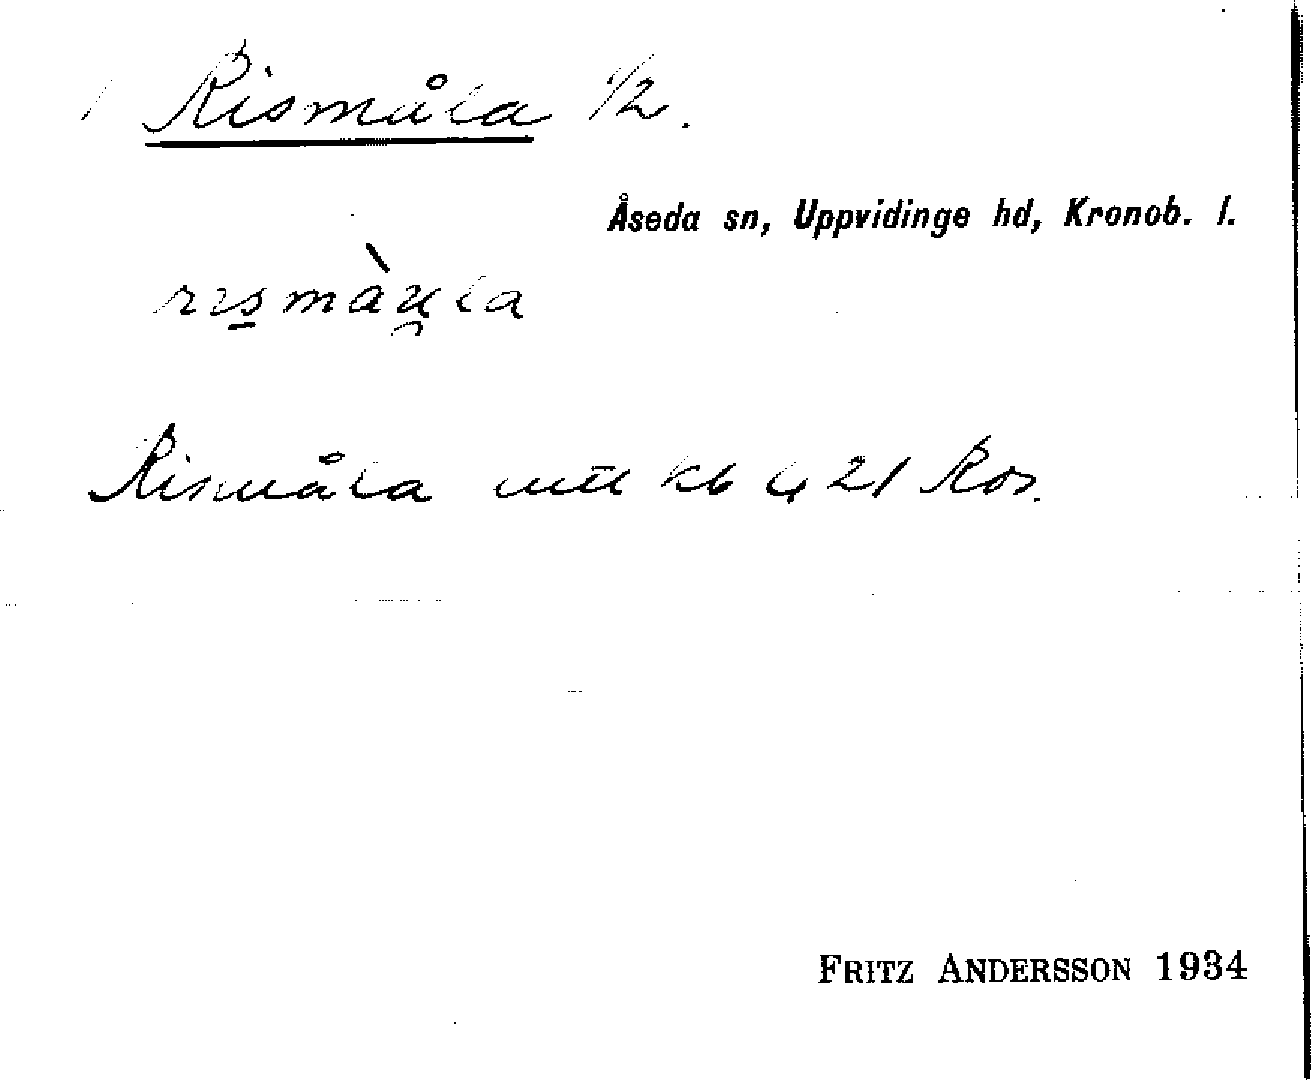 Rismåla 1/2.
Åseda sn, Uppvidinge hd, Kronob. l.
rɪs̱màu̯la
Rismåla mtl kb 421 Ror.
FRITZ ANDERSSON 1934